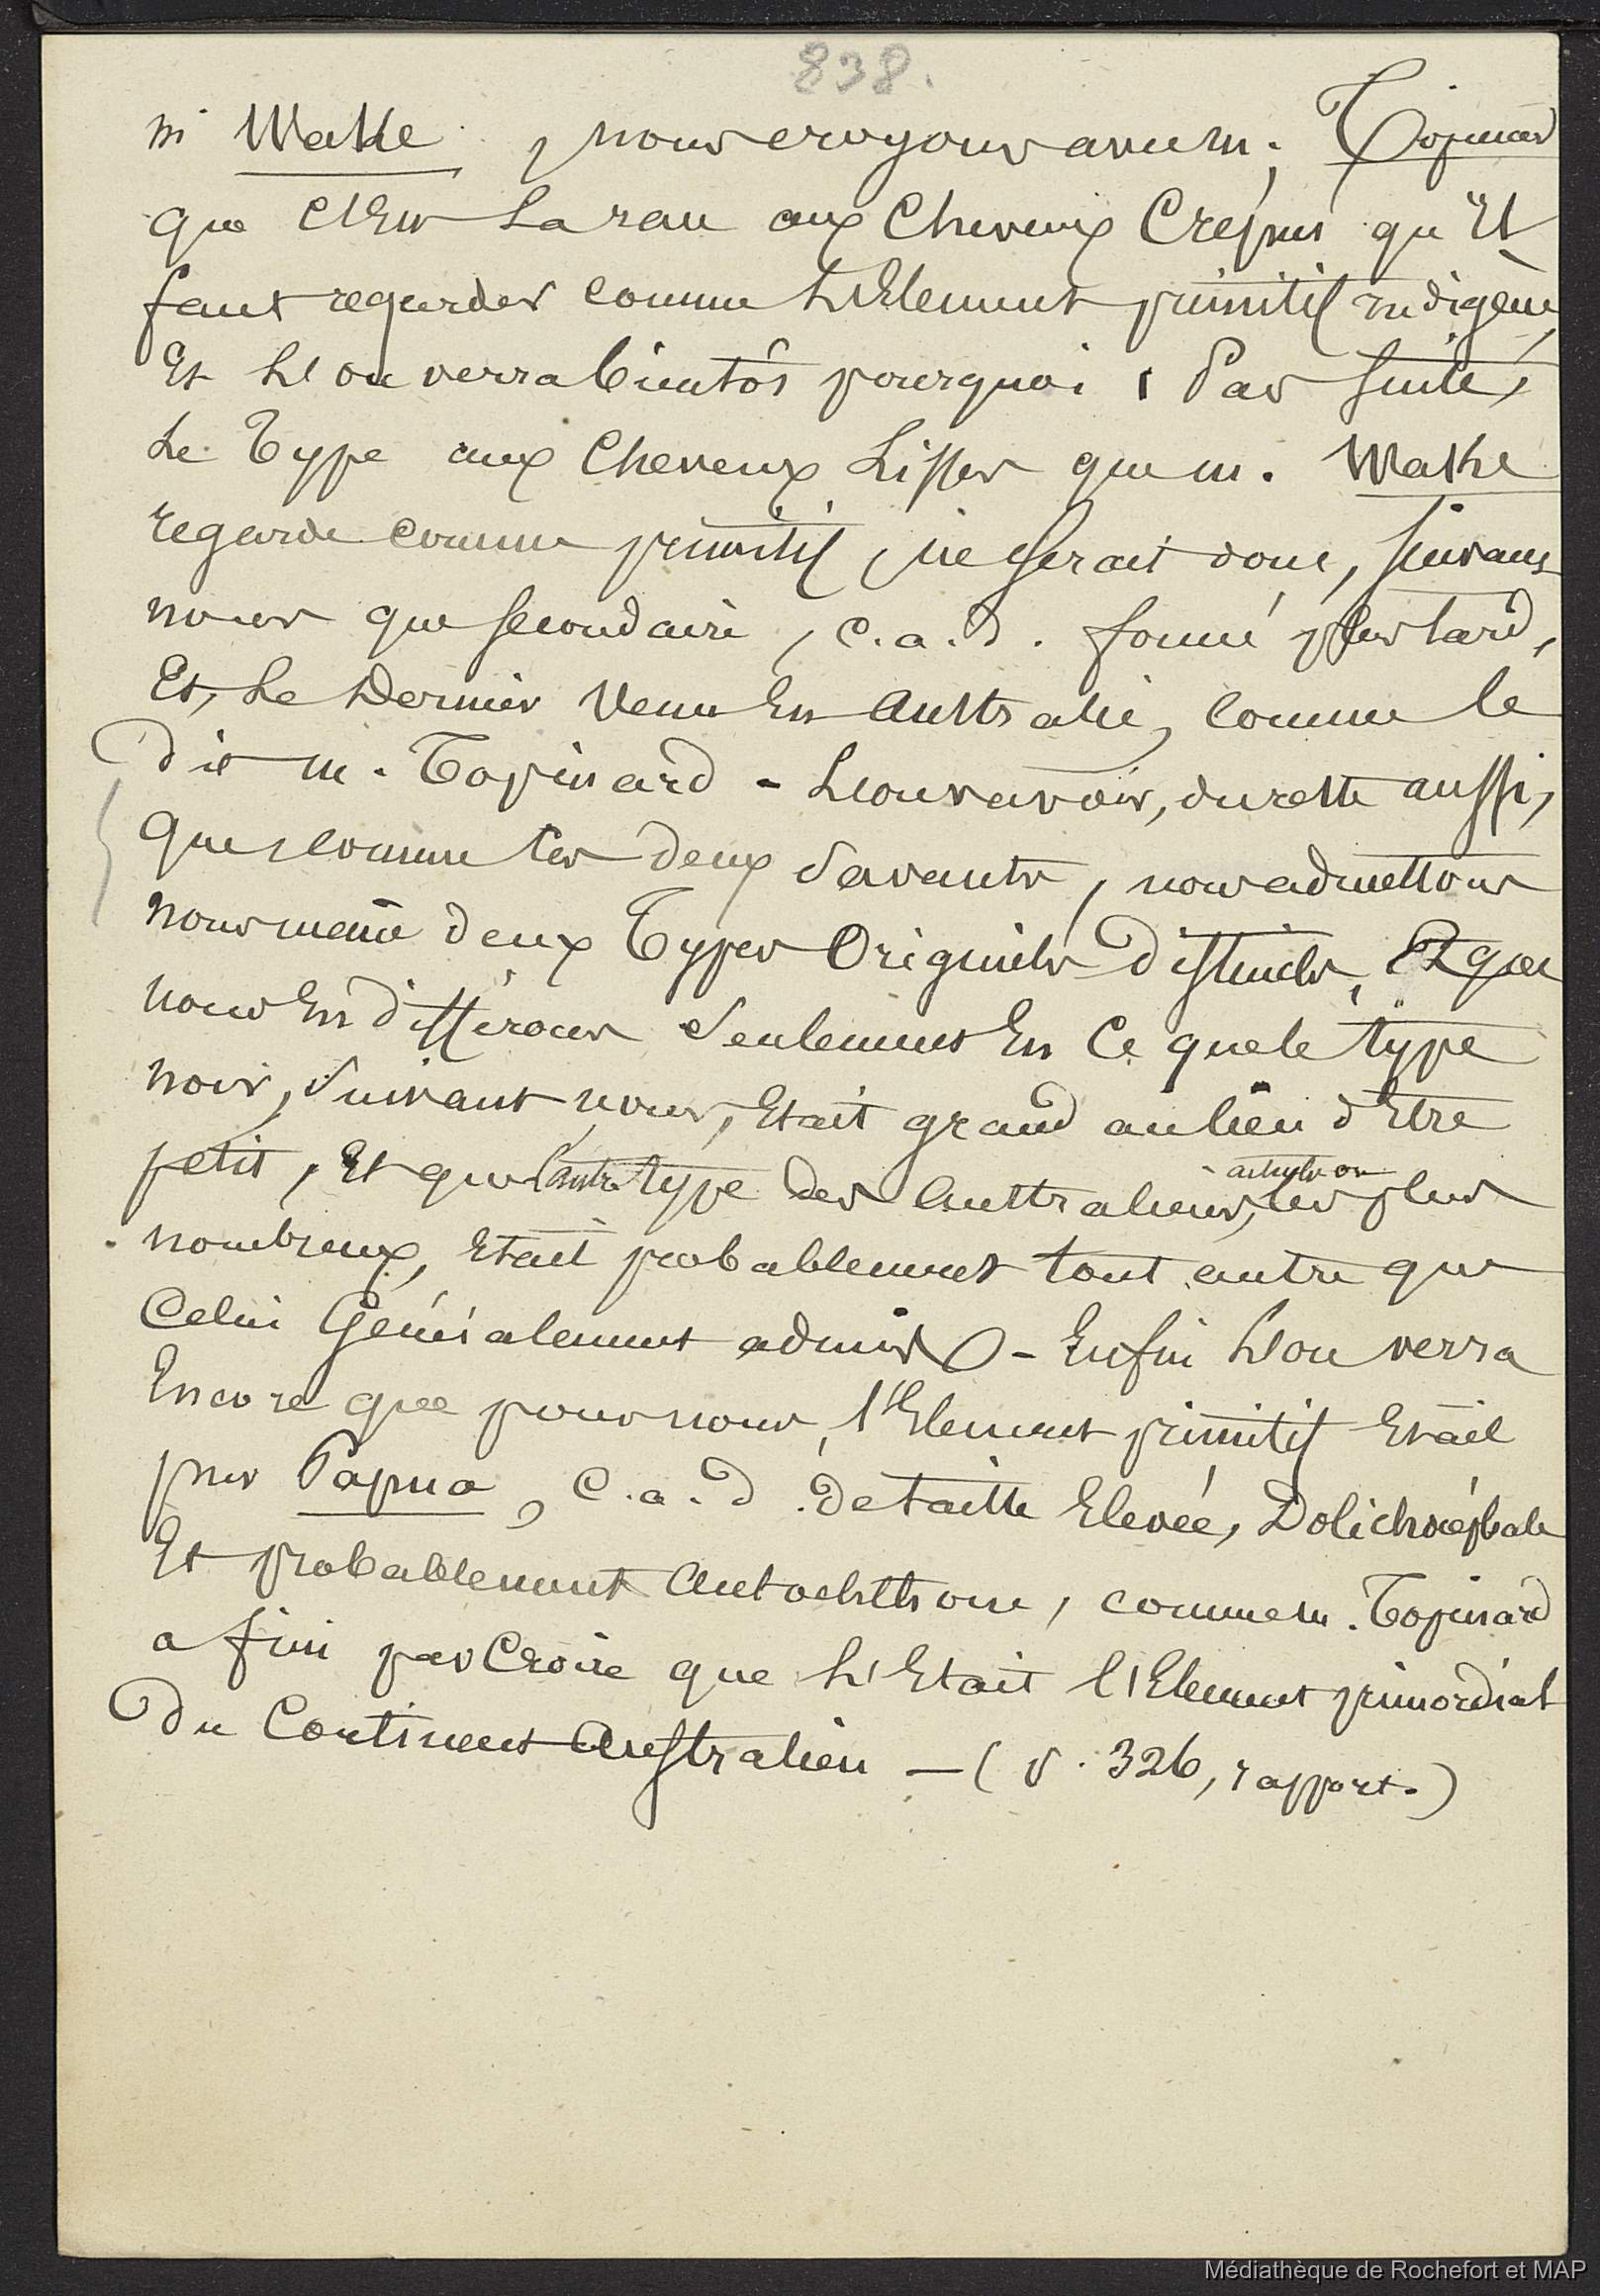 838.
m Wake, nous croyons avec m. Topinard
que c'Est La race aux Cheveux Crépus qu'Il
faut regarder comme L'Element primitif indigène,
Et L'on verra bientôt pourquoi. Par suite,
Le Type aux Cheveux Lisses que m. Wake
regarde comme primitif, ne serait donc, suivant
nous que secondaire, c.a.d. formé plus tard,
Et, Le Dernier Venu En Australie, comme le
Dit m. Topinard - L'on va voir, du reste aussi,
que comme les deux Savants, nous admettons
nous même deux Types Originels Distincts, Et que
nous En différons Seulement En Ce que le type
noir, Suivant nous, Etait grand au lieu d'Etre
petit, Et que l'autre type des Australiens, les plus
nombreux, Etait probablement tout autre que
Celui Généralement admis - Enfin L'on verra
Encore que pour nous, l'Element primitif Etait
pur Papua, C.a.d. De taille Elevée, Dolichocéphale
Et probablement Autochthone, comme m. Topinard
a fini par Croire que L'Etait l'Element primordial
Du Continent Australien — (v. 326, rapport.)
Médiathèque de Rochefort et MAP